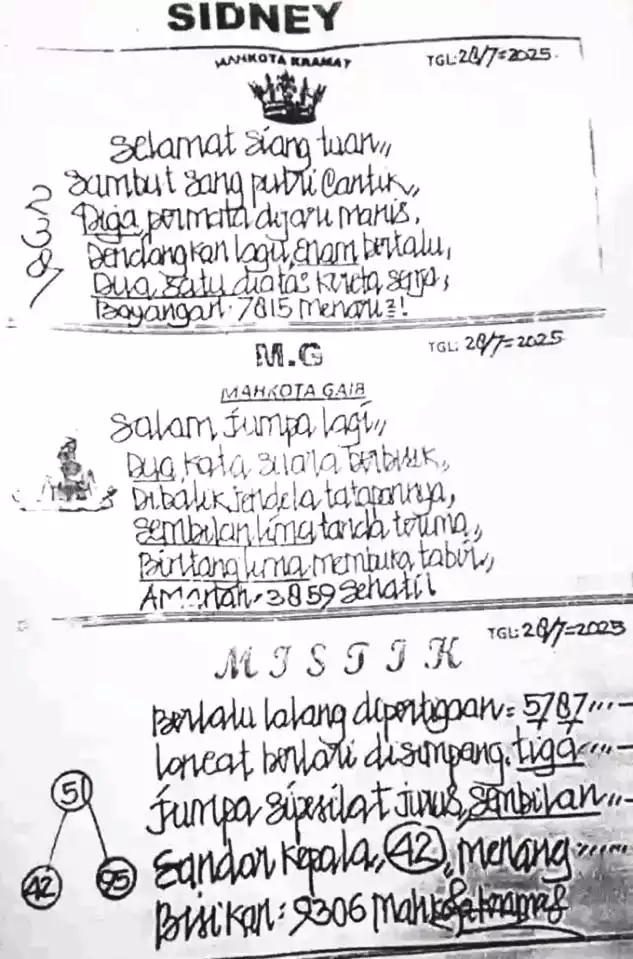 SIDNEY
MAHKOTA KRAMAT
TGL: 28/7=2025.
Selamat Siang tuan,,
Sambut Sang putri Cantik,,
Diga permata dijari manis.
Dendangkan lagu, enam bertalu,
Dua, satu diatas kereta senja,
Bayangan. 7815 Menari²!
2
3
8
/
M.G
TGL: 28/7=2025
MAHKOTA GAIB
Salam jumpa lagi,,
Dua kata suara berbisik,,
Dibalik jendela tatapannya,
Sembilan lima tanda terima,,
Bintang lima membuka tabir,,
Amanah. 3859 Sehati
TGL: 28/7=2025
MISTIK
Berlalu lalang dipertigaan = 5787,,,--
loncat berlari disimpang. tiga
jumpa sipesilat jurus, sembilan,,-
Sandar kepala, 42, menang
Bisikan: 9306
51
42
95